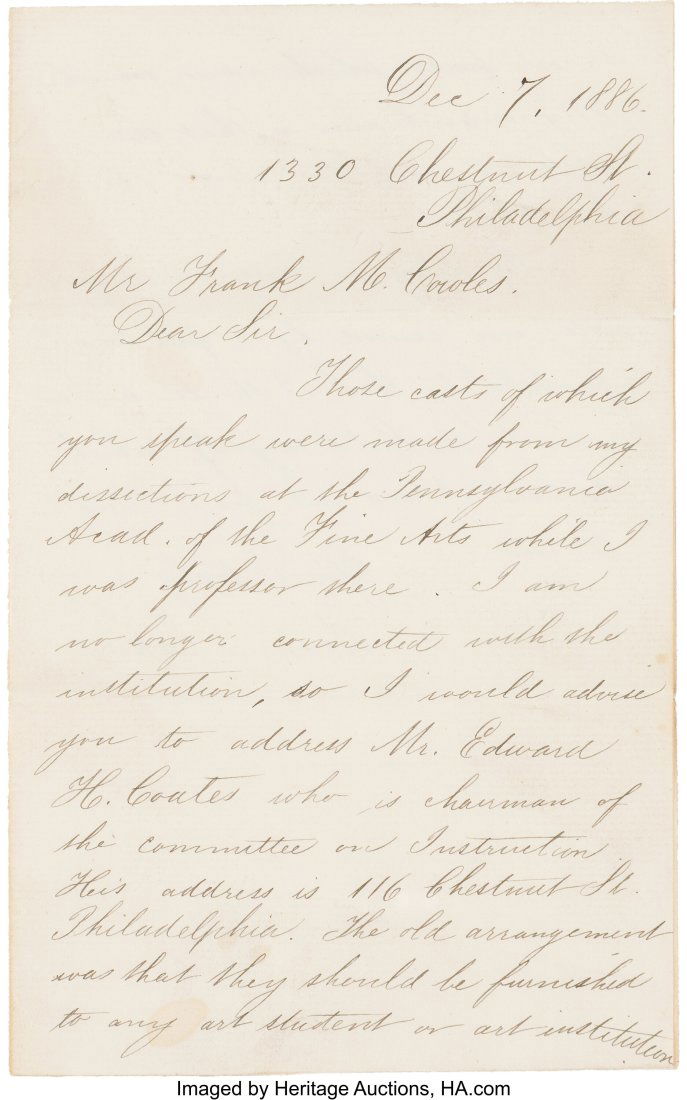 Dec 7, 1886.
1330 Chestnut St.
Philadelphia
Mr Frank M. Cowles.
Dear Sir,
Those casts of which
you speak were made from my
dissections at the Pennsylvania
Acad. of the Fine Arts while I
was professor there. I am
no longer connected with the
institution, so I would advise
you to address Mr. Edward
H. Coates who is chairman of
the committee on Instruction
His address is 116 Chestnut St.
Philadelphia. The old arrangement
was that they should be furnished
to any art student or art institution
Imaged by Heritage Auctions, HA.com